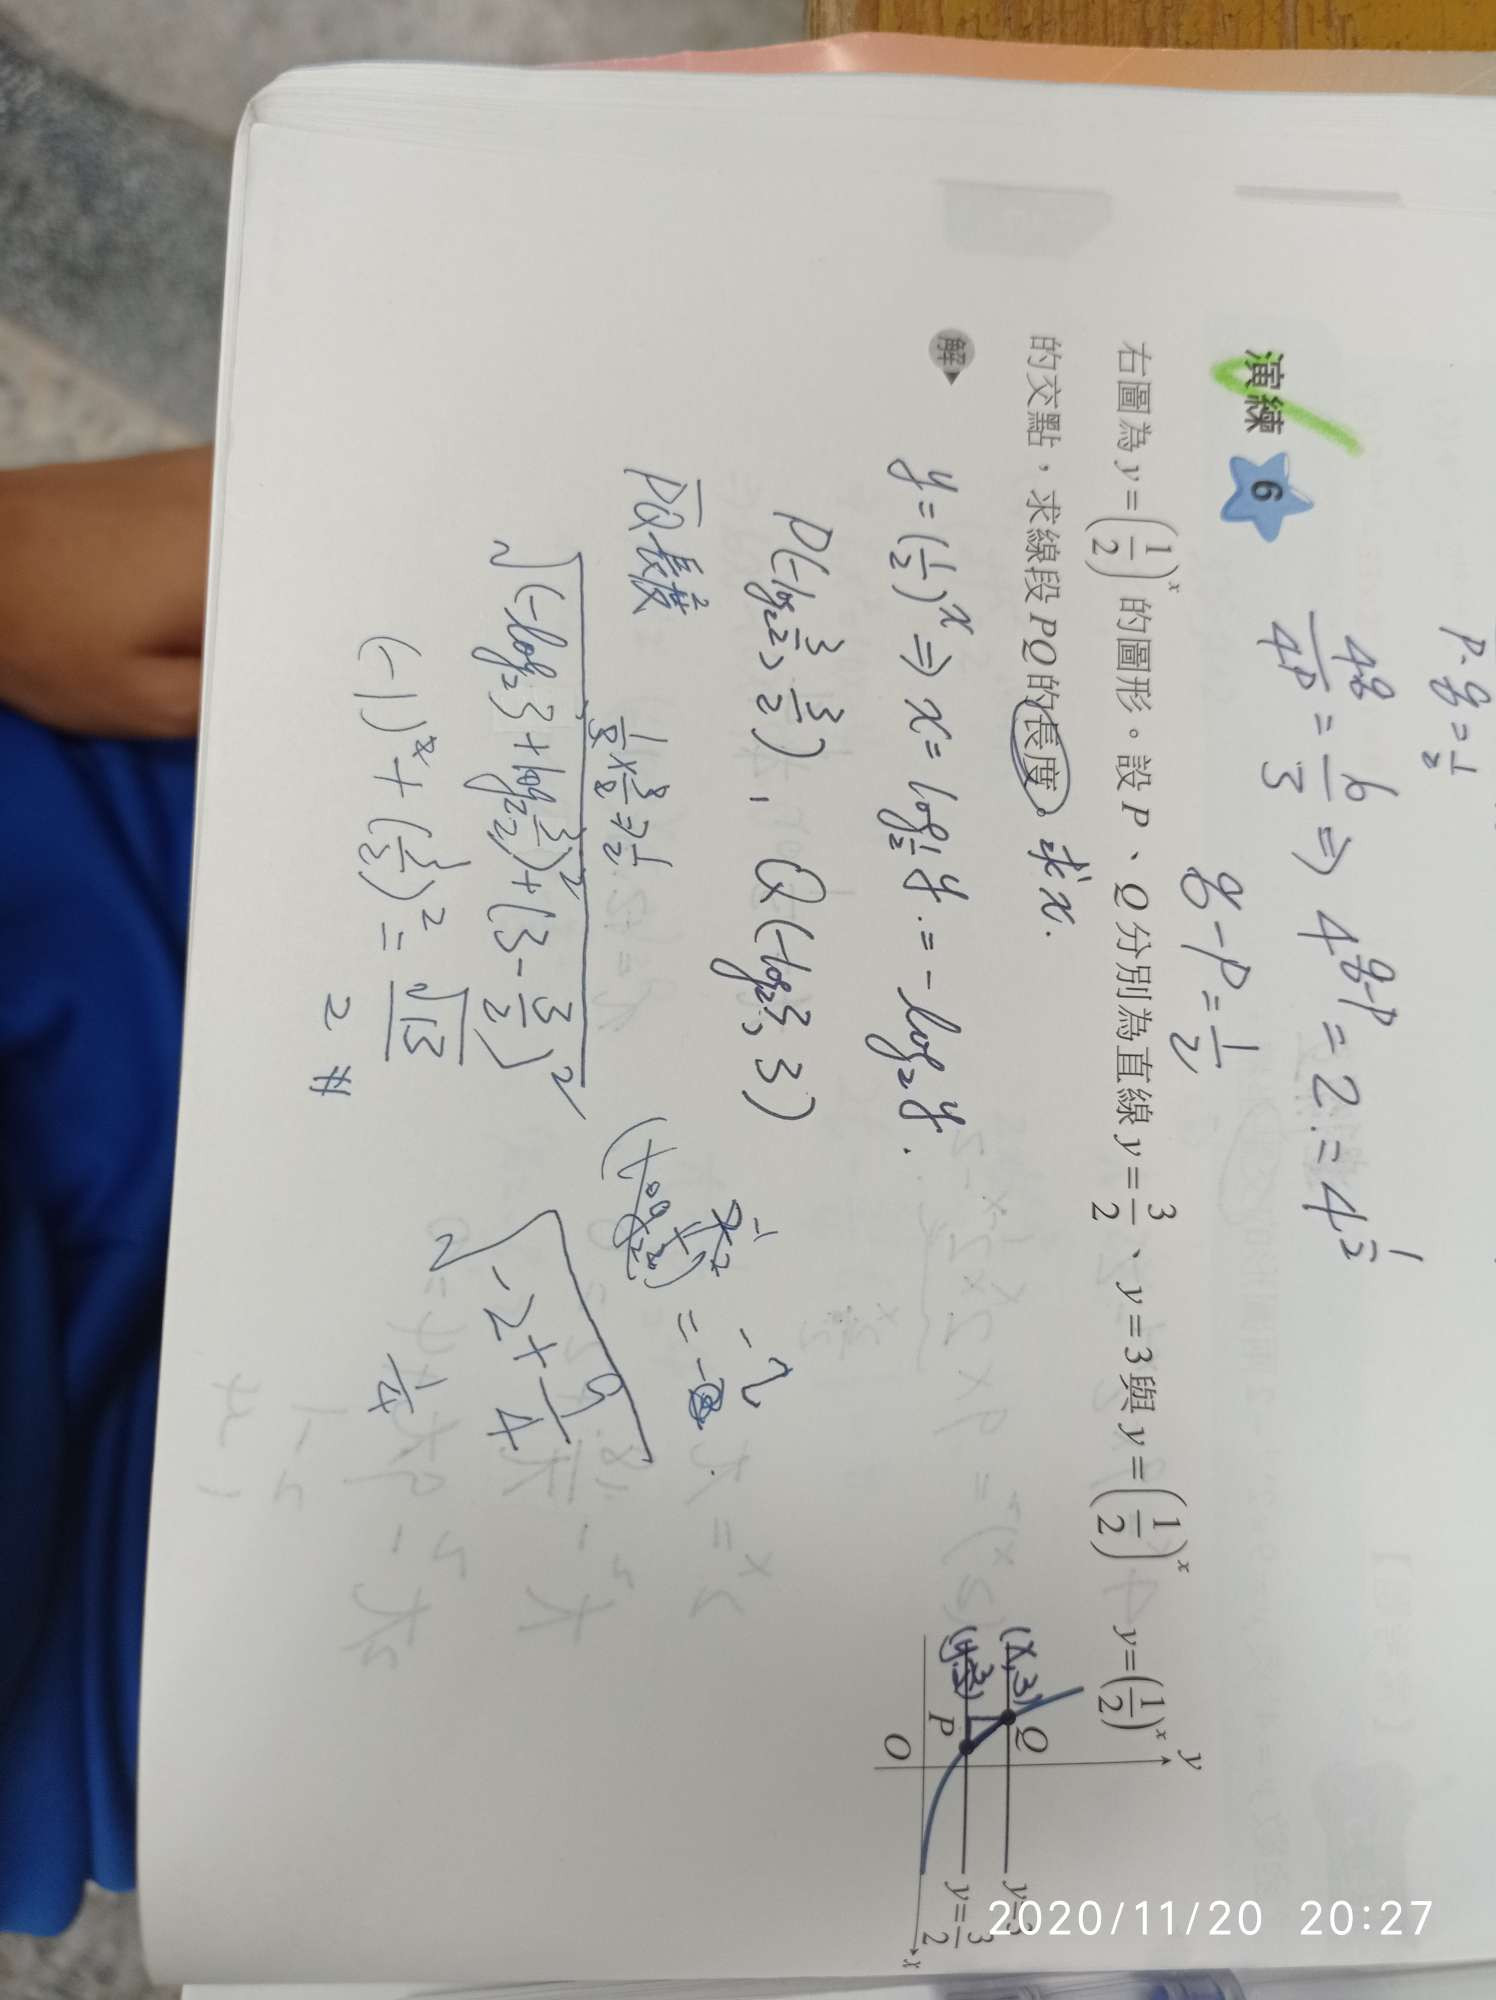 p·q=1/2
4^q/4^p = 6/3 ⇒ 4^(q-p) = 2 = 4^(1/2)
q-p = 1/2
演練 6
右圖為 y=(1/2)^x 的圖形。設 P、Q 分別為直線 y=3/2、y=3 與 y=(1/2)^x
的交點,求線段 PQ 的長度。求x.
解
y=(1/2)^x ⇒ x = log_(1/2) y = -log_2 y.
P(-log_2 3/2, 3/2), Q(-log_2 3, 3)
PQ長度
1/3 × 3/2 = 1/2
√((-log_2 3 + log_2 3/2)^2 + (3 - 3/2)^2)
(-1)^2 + (3/2)^2 = √13
2 #
-1
= -2
√(-2 + 9/4)
1/4
y=(1/2)^x
y
(x, 3)
Q
y=3
P
y=3/2
O
x
2020/11/20 20:27